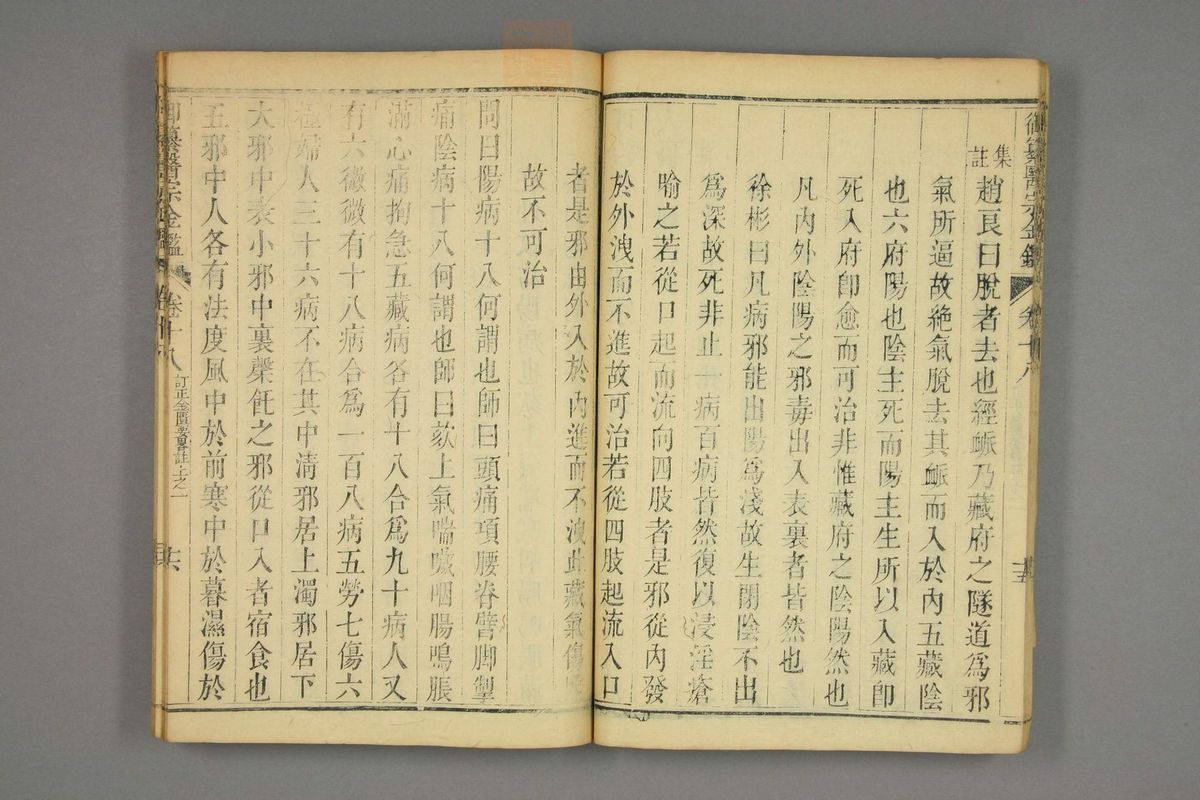 御纂醫宗金鑑
卷十八
十五
集註
趙良曰脫者去也經脈乃藏府之隧道為邪
氣所逼故絶氣脫去其脈而入於內五藏陰
也六府陽也陰主死而陽主生所以入藏卽
死入府卽愈而可治非惟藏府之陰陽然也
凡內外陰陽之邪毒出入表裏者皆然也
徐彬曰凡病邪能出陽為淺故生閉陰不出
為深故死非止一病百病皆然復以浸淫瘡
喻之若從口起而流向四肢者是邪從內發
於外洩而不進故可治若從四肢起流入口
者是邪由外入於內進而不洩此藏氣傷
故不可治
問曰陽病十八何謂也師曰頭痛項腰脊臂脚掣
痛陰病十八何謂也師曰欬上氣喘噦咽腸鳴脹
滿心痛拘急五藏病各有十八合為九十病人又
有六微微有十八病合為一百八病五勞七傷六
極婦人三十六病不在其中淸邪居上濁邪居下
大邪中表小邪中裏䅽飥之邪從口入者宿食也
五邪中人各有法度風中於前寒中於暮濕傷於
御纂醫宗金鑑
卷十八
訂正金匱要畧註上之一
十六